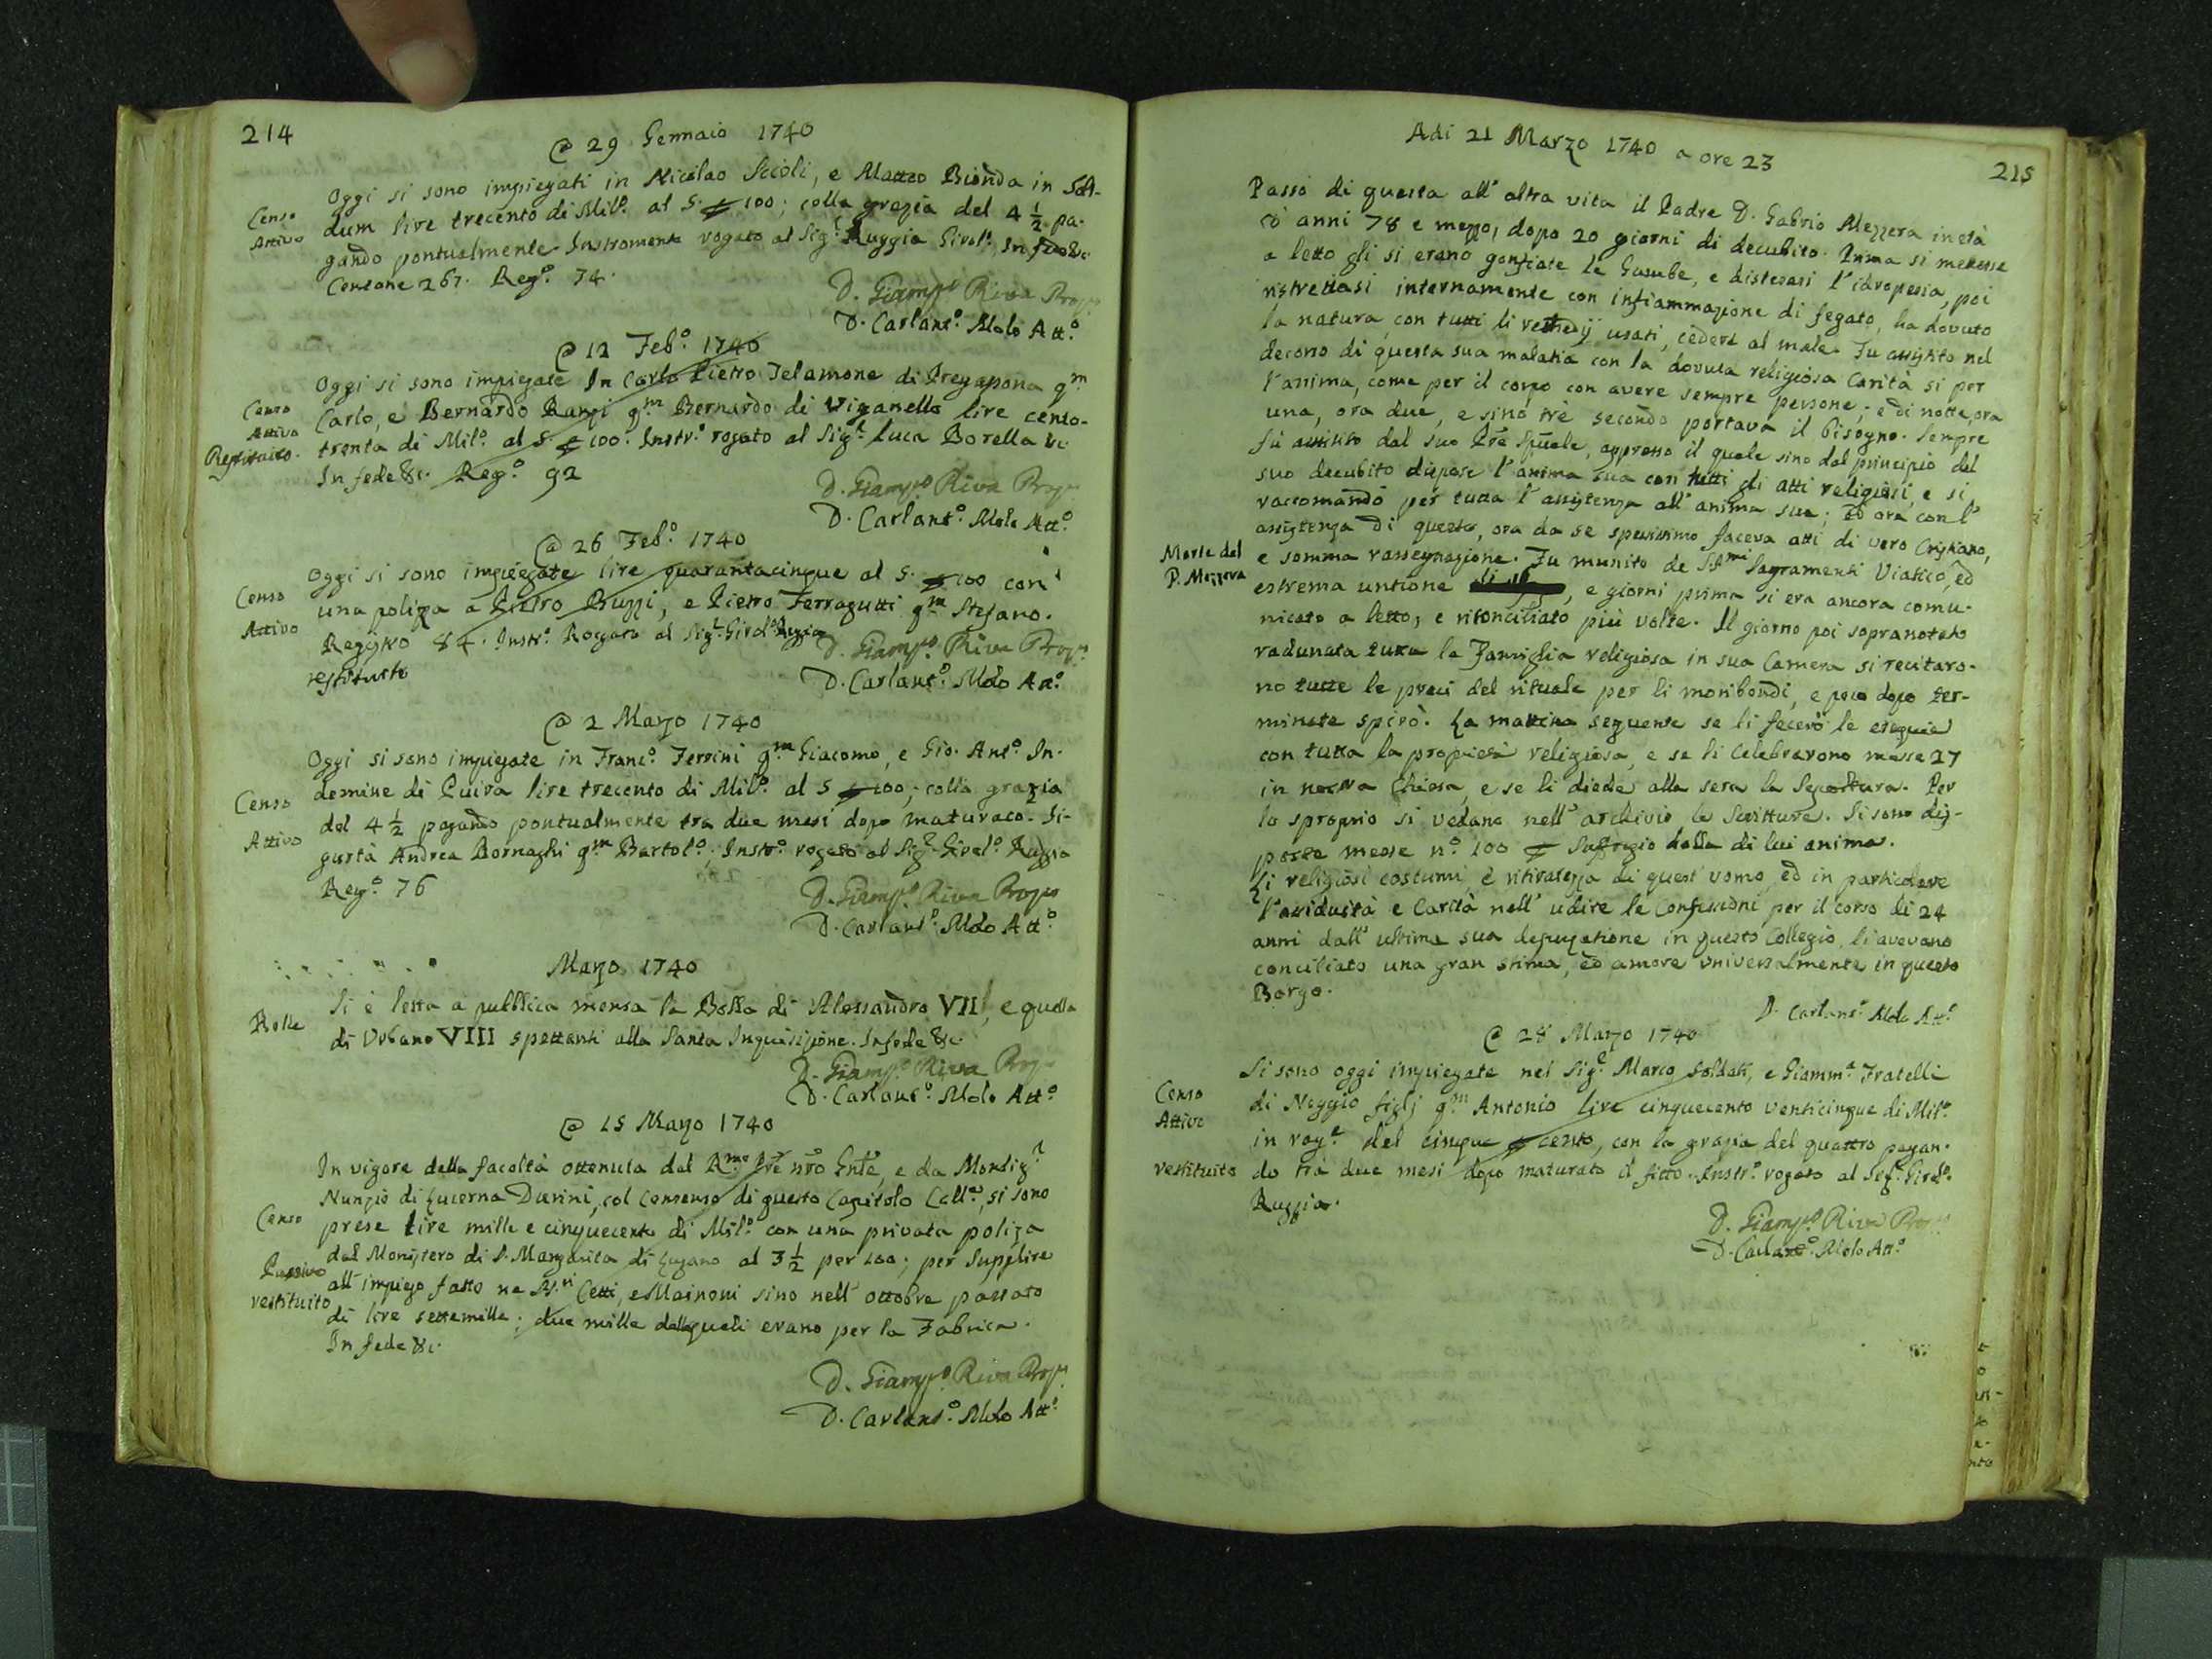 214
@ 29 Gennaio 1740
Censo
Attivo
Oggi si sono impiegati in Nicolao Sccoli, e Matteo Bionda in Soli-
dum lire trecento di Mil.º al 5. p 100; colla grazia del 4 1/2 pa-
gando pontualmente Instromento rogato al Sig.r Ruggia Girol.º In fede &c.
Consone 267. Reg.º 74.
D. Giamp.º Riva Prop.º
D. Carlant.º Molo Att.º
@ 12 Feb.º 1740
Censo
Attivo
Restituito.
Oggi si sono impiegate In Carlo Pietro Telamone di Pregapona q.m
Carlo, e Bernardo Ranzi q.m Bernardo di Viganello lire cento-
trenta di Mil.º al 5. p 100. Instr.º rogato al Sig.r Luca Borella &c.
In fede &c. Reg.º 92
D. Giamp.º Riva Prop.º
D. Carlant.º Molo Att.º
@ 26 Feb.º 1740
Censo
Attivo
Oggi si sono impiegate lire quarantacinque al 5. p 100 con
una polizza a Pietro Buzzi, e Pietro Ferragutti q.m Stefano.
Registro 84. Instr.º Rogato al Sig.r Girol.º Ruggia
restituito
D. Giamp.º Riva Prop.º
D. Carlant.º Molo Att.º
@ 2 Marzo 1740
Censo
Attivo
Oggi si sono impiegate in Franc.º Ferrini q.m Giacomo, e Gio. Ant.º In-
demine di Puira lire trecento di Mil.º al 5 p 100; colla grazia
del 4 1/2 pagando pontualmente tra due mesi dopo maturato. Si-
gurtà Andrea Bornaghi q.m Bartol.º; Instr.º rogato al Sig.r Girol.º Ruggia
Reg.º 76
D. Giamp.º Riva Prop.º
D. Carlant.º Molo Att.º
Marzo 1740
Bolle
Si è letta a pubblica mensa la Bolla di Alessandro VII, e quella
di Urbano VIII spettanti alla Santa Inquisizione. In fede &c.
D. Giamp.º Riva Prop.º
D. Carlant.º Molo Att.º
@ 15 Marzo 1740
Censo
Passivo
restituito
In vigore della facoltà ottenuta dal R.mo Pre nro Gnle, e da Monsig.r
Nunzio di Lucerna Durini, col consenso di questo Capitolo Coll.e, si sono
prese lire mille e cinquecento di Mil.º con una privata poliza
dal Monistero di S. Margarita di Lugano al 3 1/2 per 100; per supplire
all' impiego fatto ne SS.ri Cetti, e Mainoni sino nell' ottobre passato
di lire settemille; due mille delle quali erano per la Fabrica.
In fede &c.
D. Giamp.º Riva Prop.º
D. Carlant.º Molo Att.º
215
Adi 21 Marzo 1740 a ore 23
Passò di questa all' altra vita il Padre D. Gabrio Mezzera in età
cò anni 78 e mezzo, dopo 20 giorni di decubito. Prima si mettesse
a letto gli si erano gonfiate le Gambe, e distesasi l'idropesia, poi
ristrettasi internamente con infiammazione di fegato, ha dovuto
la natura, con tutti li remedij usati, cedere al male. Fu assistito nel
decorso di questa sua malatia con la dovuta religiosa Carità sì per
l'anima, come per il corpo con avere sempre persone; e di notte, ora
una, ora due, e sino trè secondo portava il bisogno. Sempre
fù assistito dal suo Pre Spuale, appresso il quale sino dal principio del
suo decubito dispose l'anima sua con tutti gli atti religiosi, e si
raccomandò per tutta l'assistenza all' anima sua; ed ora con l'
assistenza di questo, ora da se spessissimo faceva atti di vero Cristiano,
Morte del
P. Mezzera
e somma rassegnazione. Fu munito de S.S.mi Sagramenti Viatico, ed
estrema untione, e giorni prima si era ancora comu-
nicato a letto, e riconciliato più volte. Il giorno poi sopranotato
radunata tutta la Famiglia religiosa in sua Camera si recitaro-
no tutte le preci del rituale per li moribondi, e poco dopo ter-
minate spirò. La mattina seguente se li fecero le esequie
con tutta la propietà religiosa, e se li celebrarono messe 27
in nostra Chiesa, e se li diede alla sera la Sepoltura. Per
lo sproprio si vedano nell' archivio le Scritture. Si sono dis-
posto messe n.º 100 p suffragio della di lui anima.
Li religiosi costumi, e ritiratezza di quest' uomo, ed in particolare
l'assiduità e Carità nell' udire le Confessioni per il corso di 24
anni dall' ultima sua deputatione in questo Collegio, li avevano
conciliato una gran stima, ed amore universalmente in questo
Borgo.
D. Carlant.º Molo Att.º
@ 28 Marzo 1740
Censo
Attivo
restituito
Si sono oggi impiegate nel Sig.r Marco Soldati, e Giamm.a Fratelli
di Neggio figlj q.m Antonio lire cinquecento venticinque di Mil.º
in rag.e del cinque p cento, con la grazia del quattro pagan-
do trà due mesi dopo maturato il fitto. Instr.º rogato al Sig.r Girol.º
Ruggia.
D. Giamp.º Riva Prop.º
D. Carlant.º Molo Att.º